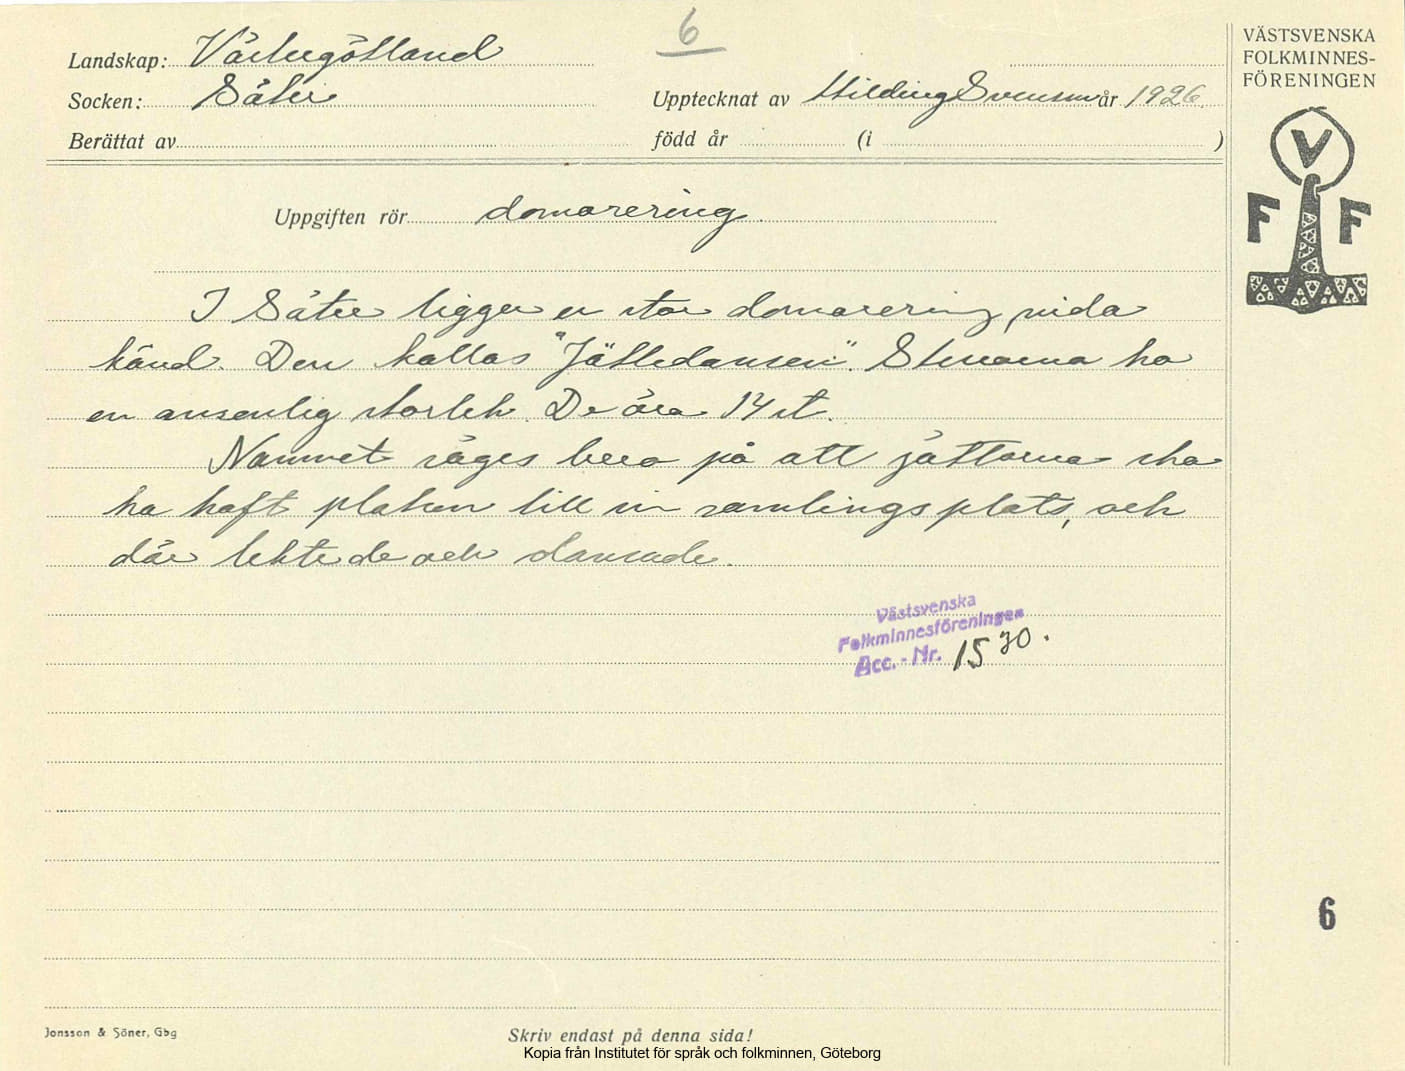 6
VÄSTSVENSKA
FOLKMINNES-
FÖRENINGEN
V
F F
Landskap: Västergötland
Socken: Säter Upptecknat av Hilding Svensson år 1926.
Berättat av född år (i )
Uppgiften rör domarering.
I Säter ligger en stor domarering, vida
känd. Den kallas "Jättedansen". Stenarna ha
en ansenlig storlek. De äro 14 st.
Namnet säges bero på att jättarna ska
ha haft platsen till en samlingsplats, och
där lekte de och dansade.
Västsvenska
Folkminnesföreningen
Acc.-Nr. 1530.
6
Jonsson & Söner, Gbg
Skriv endast på denna sida!
Kopia från Institutet för språk och folkminnen, Göteborg